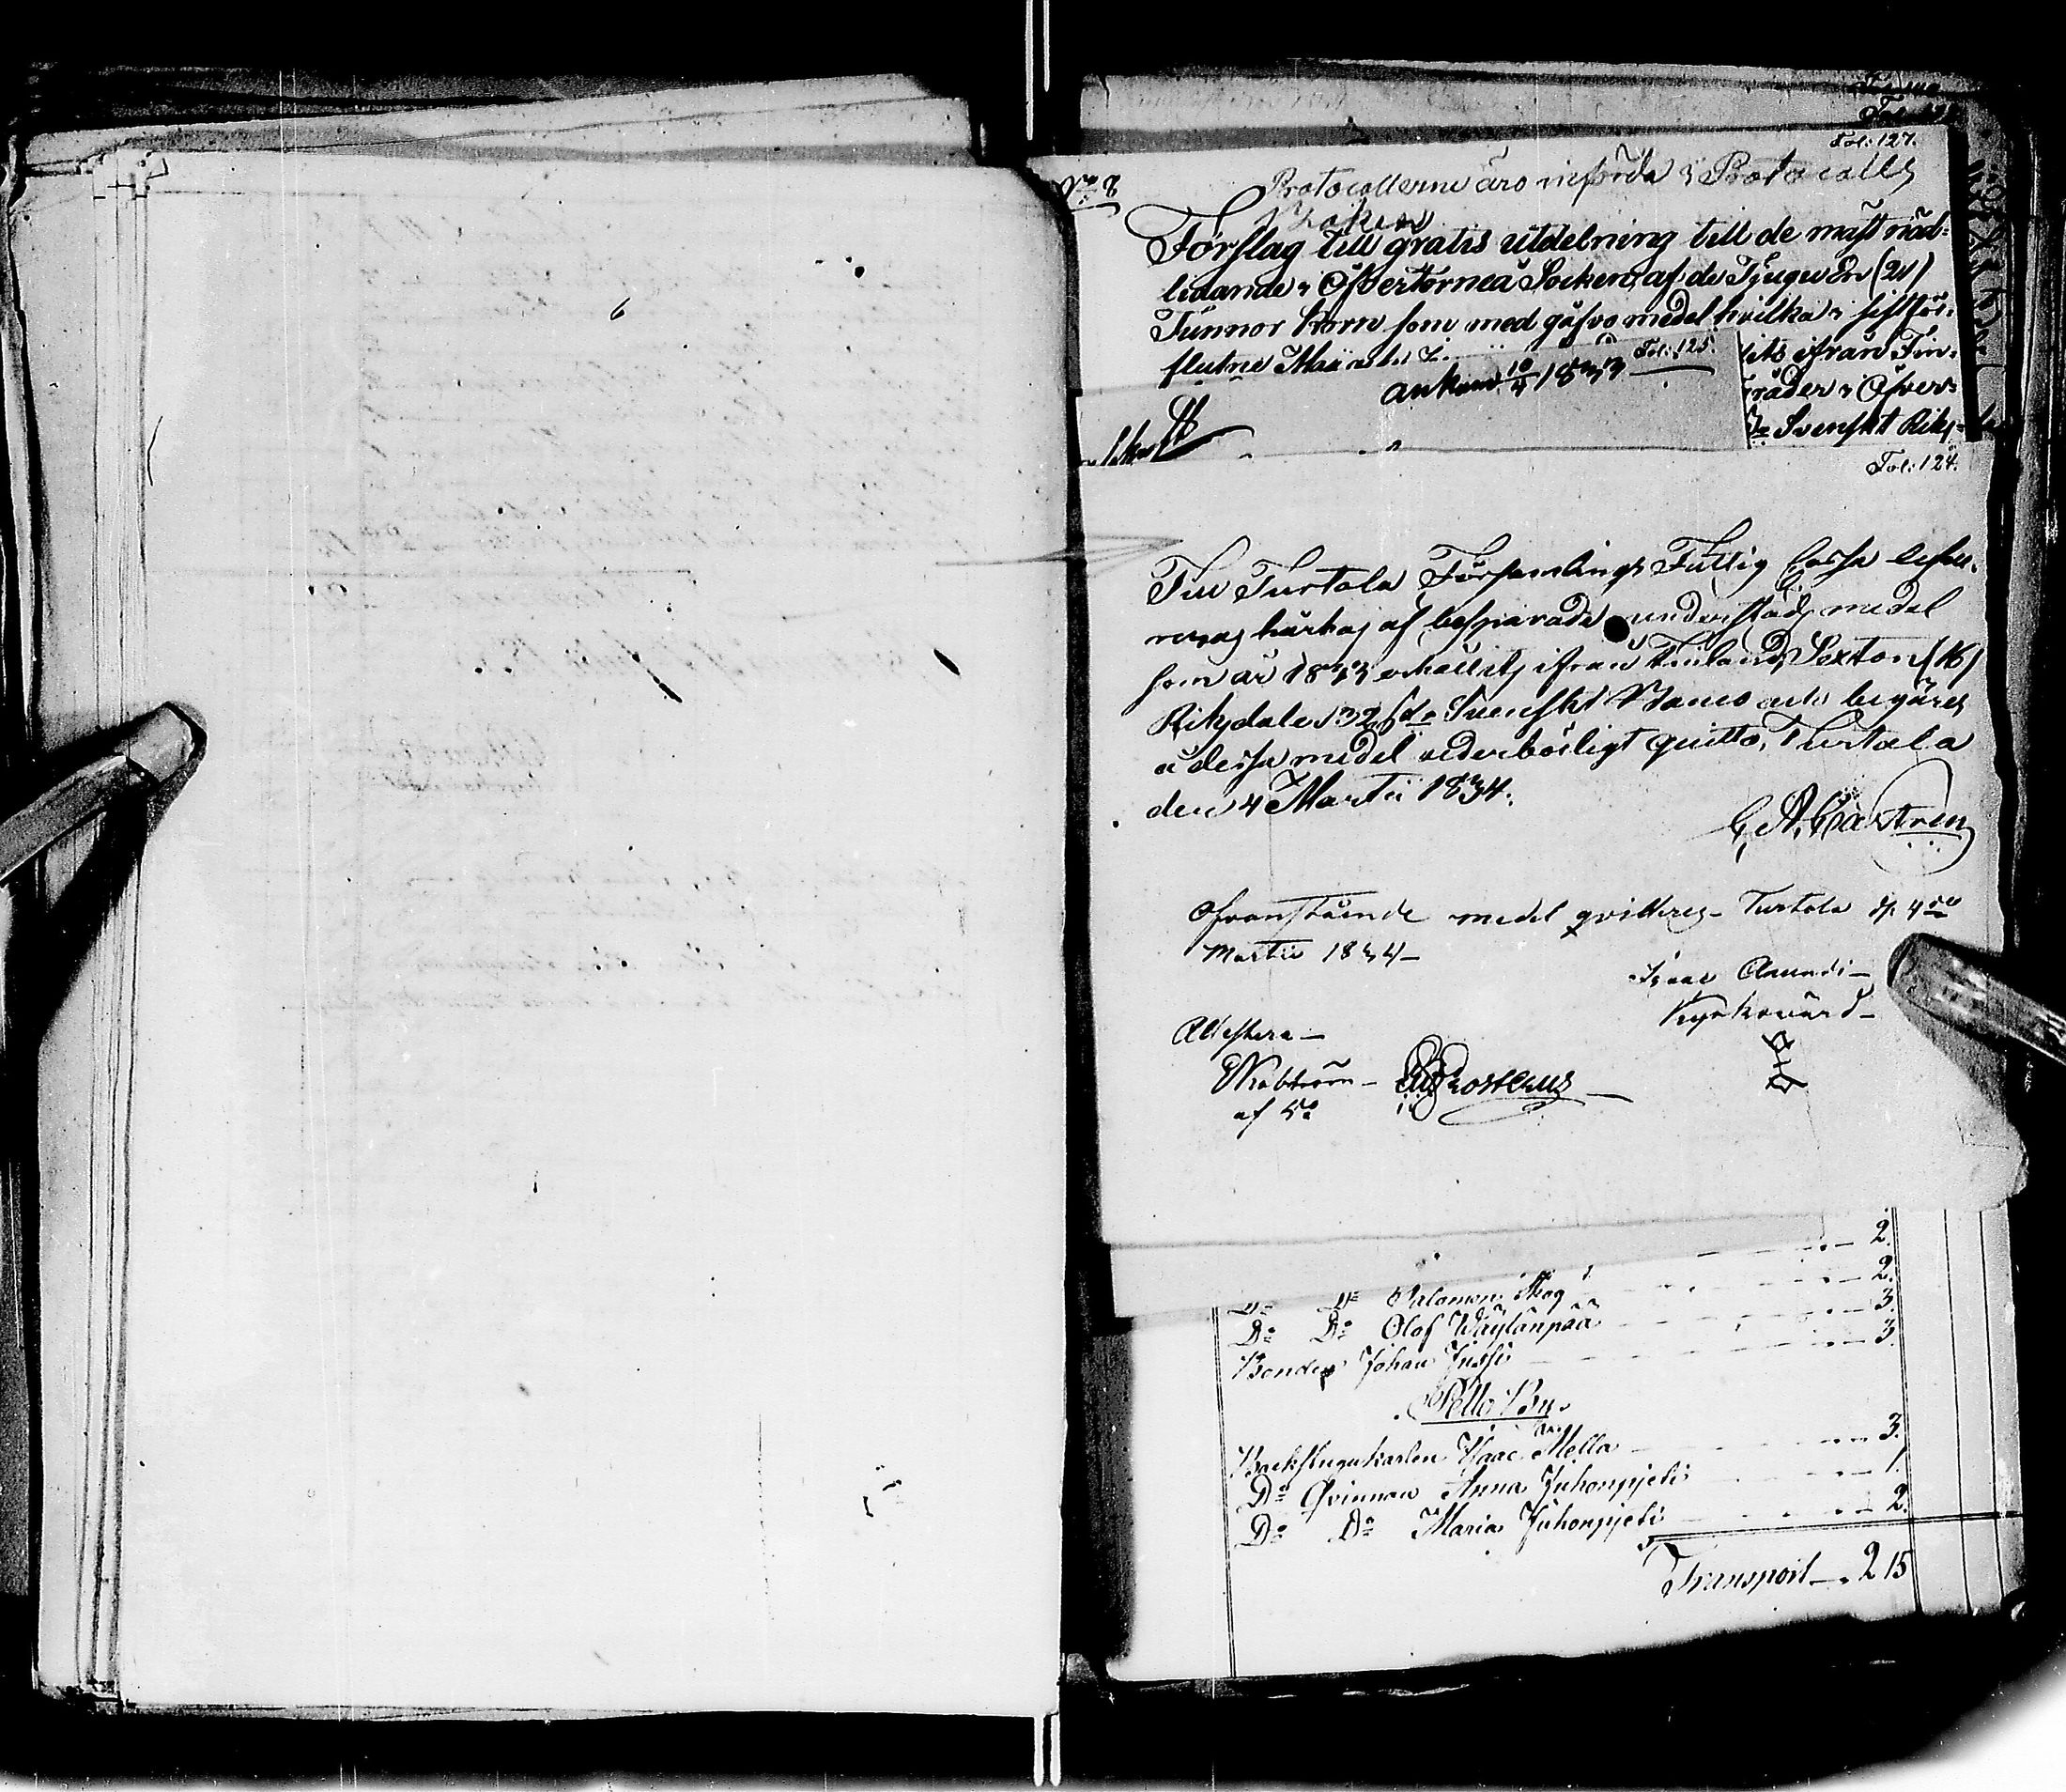 Fol: 127.
No 8
Protocollerne äro införda i Protocolls
Boken
Förslag till gratis utdelning till de mäst nöd-
lidande i Öfvertorneå Socken, af de Tjugu En (21)
Tunnor Korn som med gåfvo medel hvilka i sistför-
flutne
ifrån Fin-
Fol: 125.
ankom 10/4 1833
i Öfver-
Svenskt Riks-
Fol: 124.
Till Turtola Församlings Fattig Cassa
härhos af besparade understöds medel
som år 1833 erhållits ifrån Finland, Sexton (16)
Riksdaler 32 s. Svenskt Banco och begäres
å dessa medel vederbörligt quitto, Turtola
den 4 Martii 1834.
C. A. Castrén
Ofvanstående medel qvitteras Turtola d. 4de
Martii 1834 –
Isaac Amundi –
Kyrkovärd –
Attestera –
af
2.
Do Do Salomon Skog 2.
Do Do Olof Wäylänpää 3.
Bonden Johan Jussi 3.
Pello By.
Backstugukarlen Isaac Mella 3.
Do Qvinnan Anna Juhonpjeti 1.
Do Do Maria Juhonpjeti 2.
Transport 215